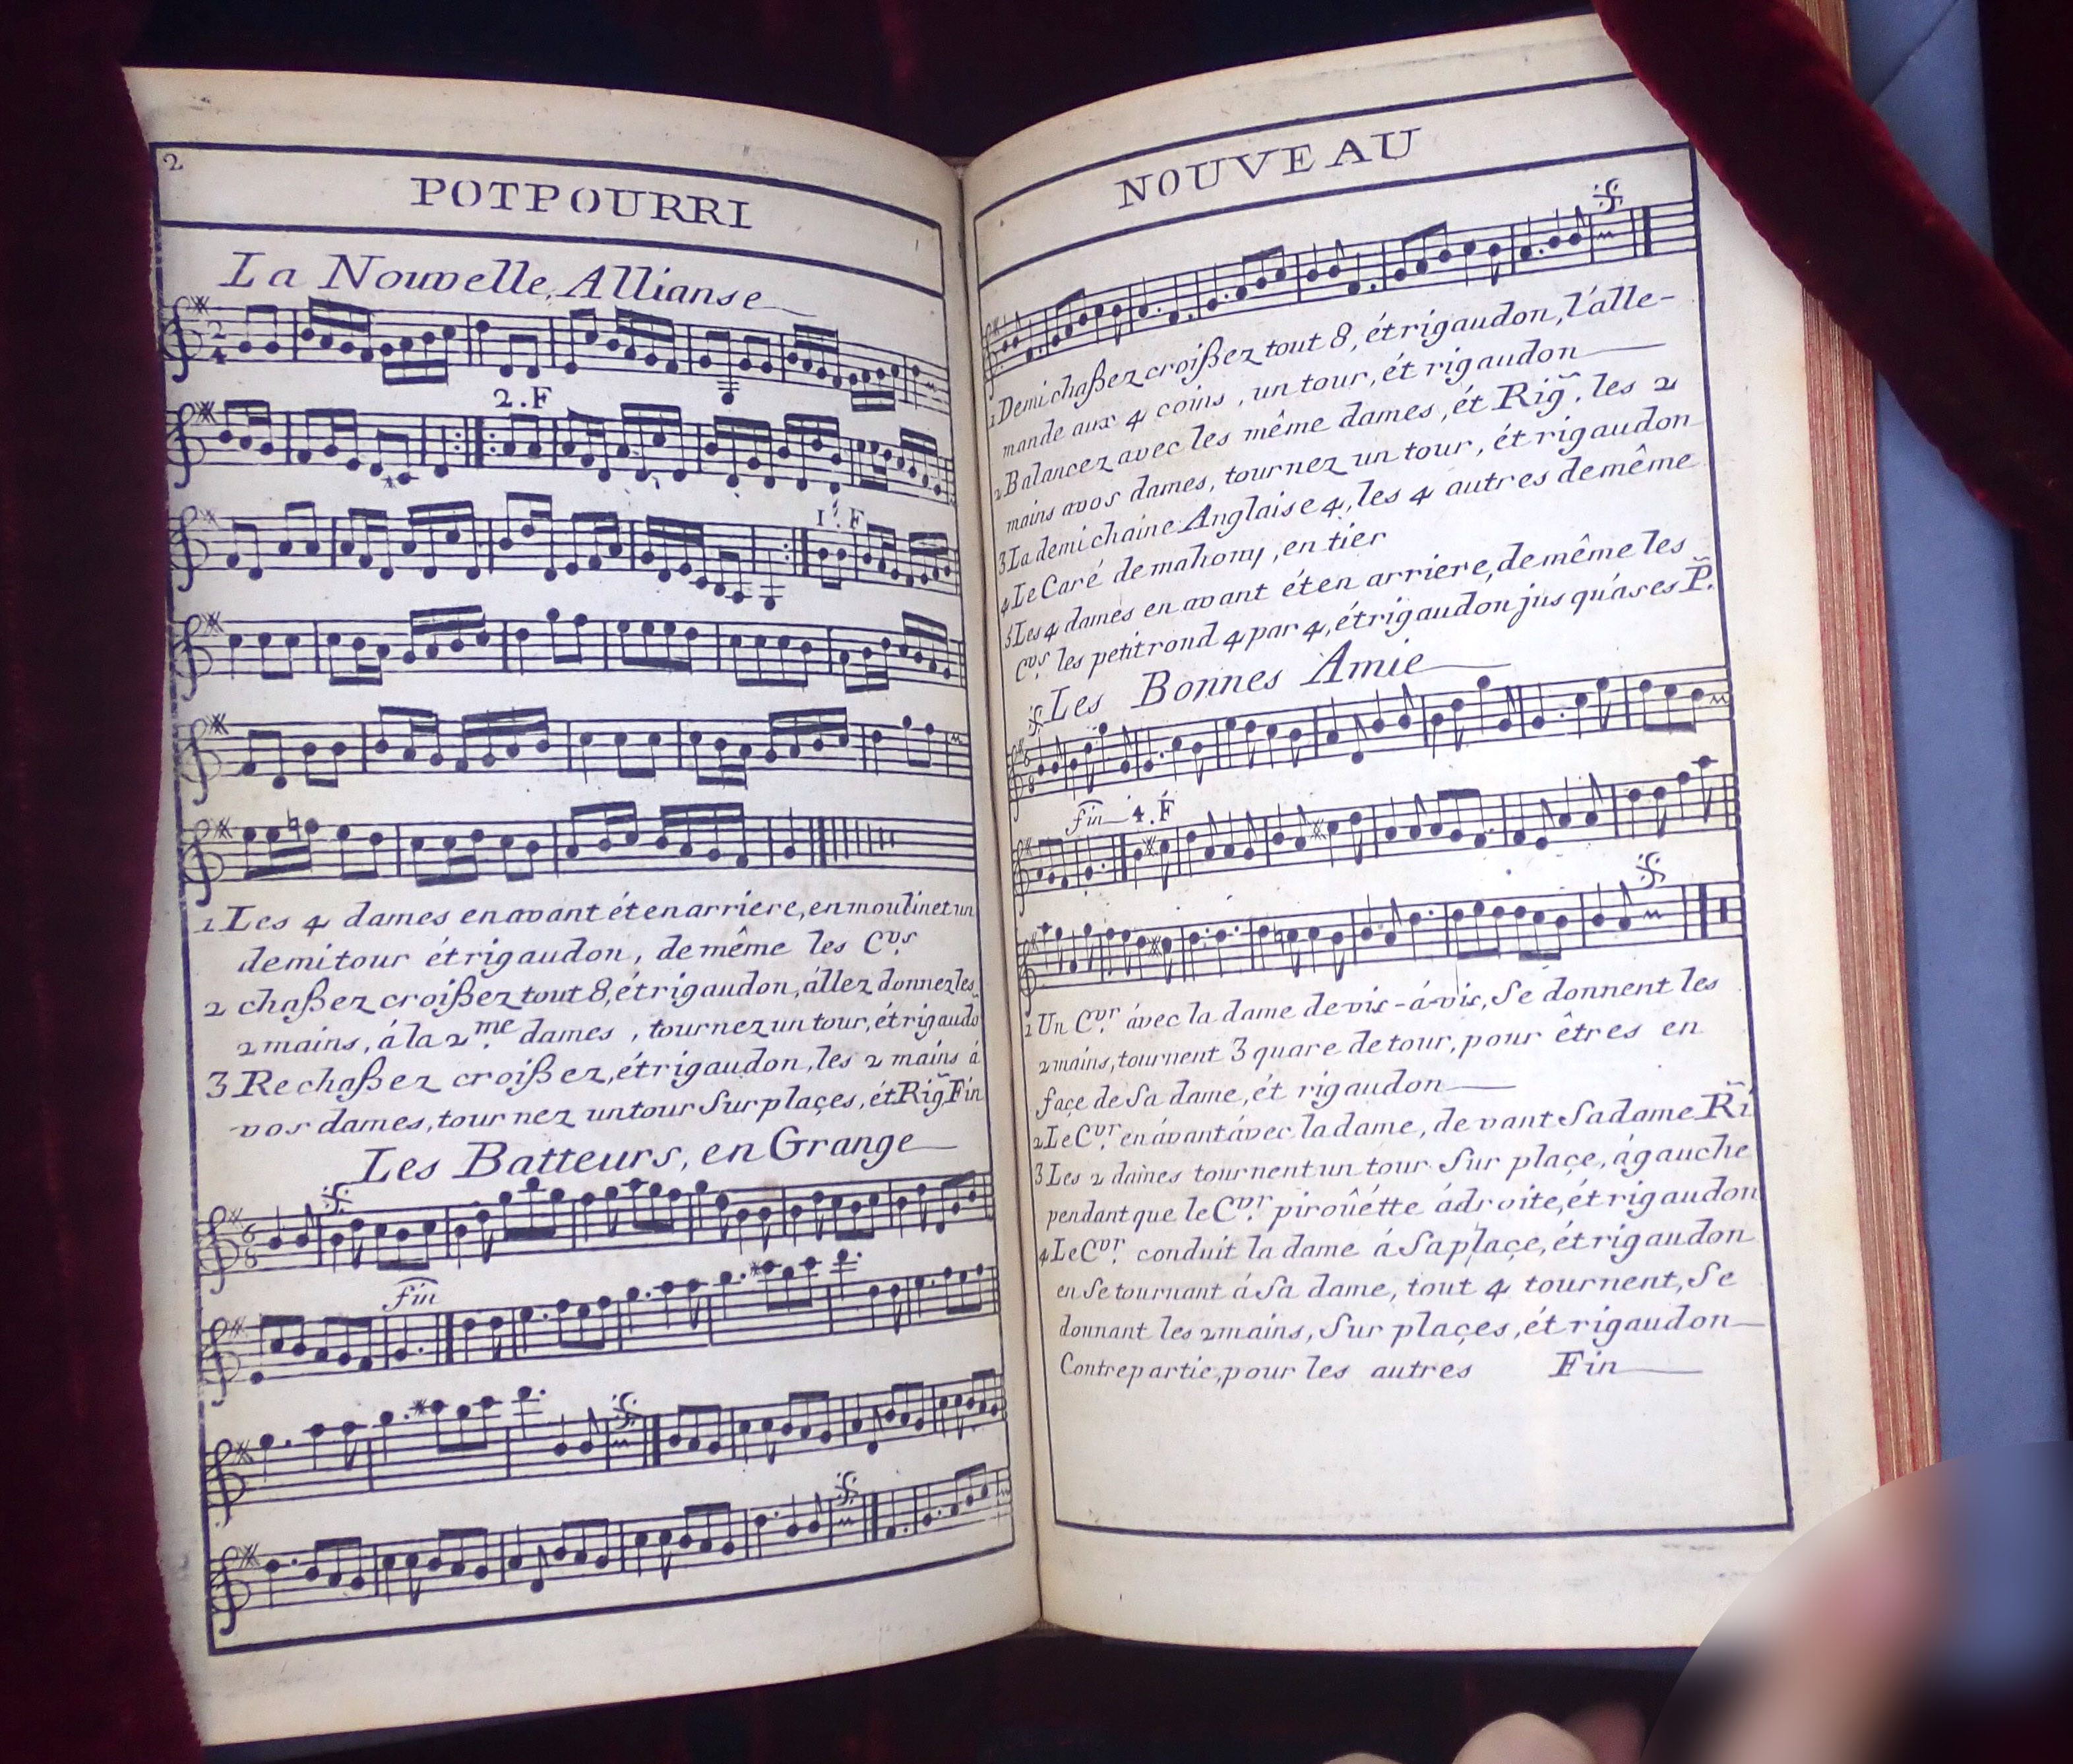 2
POTPOURRI
La Nouvelle Allianse
2
4
2.F
1.F
1 Les 4 dames en avant ét en arriere, en moulinet un
demi tour ét rigaudon, de même les Cvrs
2 chaßez croißez tout 8, ét rigaudon, állez donnez les
2 mains, á la 2me dames, tournez un tour, ét rigaudõ
3 Rechaßez croißez, ét rigaudon, les 2 mains á
vos dames, tournez un tour Sur plaçes, ét Rig. Fin
Les Batteurs, en Grange
6
8
fin
NOUVEAU
1 Demi chaßez croißez tout 8, ét rigaudon, l'alle-
mande aux 4 coins, un tour, ét rigaudon
2 Balancez avec les même dames, ét Rig. les 2
mains avos dames, tournez un tour, ét rigaudon
3 La demi chaine Anglaise 4, les 4 autres de même
4 Le Caré de mahony, en tier
5 Les 4 dames en avant ét en arriere, de même les
Cvrs les petit rond 4 par 4, ét rigaudon jus qu'áses P.
Les Bonnes Amie
6
8
fin 4.F
1 Un Cvr ávec la dame de vis-á-vis, Se donnent les
2 mains, tournent 3 quare de tour, pour êtres en
façe de Sa dame, ét rigaudon
2 Le Cvr en ávant ávec la dame, de vant Sa dame Ri
3 Les 2 dames tournent un tour Sur plaçe, á gauche
pendant que le Cvr pirouétte á droite, ét rigaudon
4 Le Cvr conduit la dame á Sa plaçe, ét rigaudon
en Se tournant á Sa dame, tout 4 tournent, Se
dounant les 2 mains, Sur plaçes, ét rigaudon
Contrepartie, pour les autres Fin